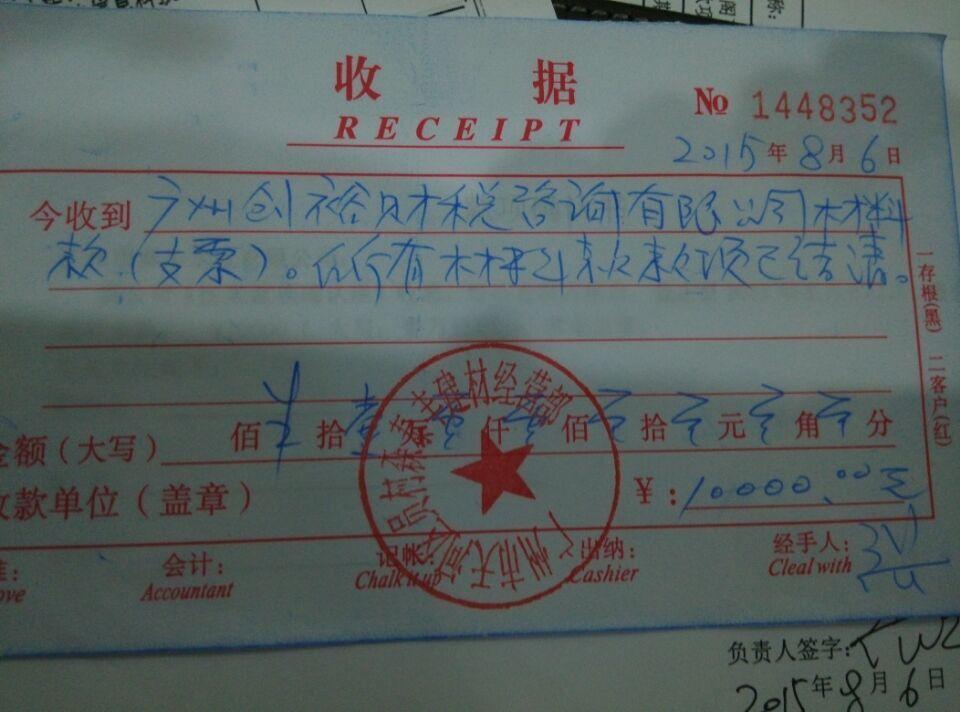 收 据
RECEIPT
№ 1448352
2015年8月6日
今收到广州创裕财税咨询有限公司材料
款(支票)。所有材料款款项已结清。
金额(大写) 佰 拾壹万零仟零佰零拾零元零角零分
收款单位(盖章) ¥:10000.00元
会计: 记账: 出纳: 经手人:
Accountant Chalk it up Cashier Cleal with
一存根(黑) 二客户(红)
建材经营部
广州市天河区员村
负责人签字:
2015年8月6日